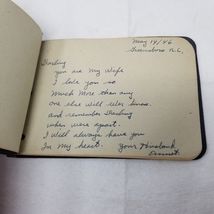 May 14/46
Greensboro N.C.
Darling
you are my Wife
I love you so
Much More than any
one else Will ever know.
and remember Darling
when were apart.
I Will always have you
In My heart. Your Husband